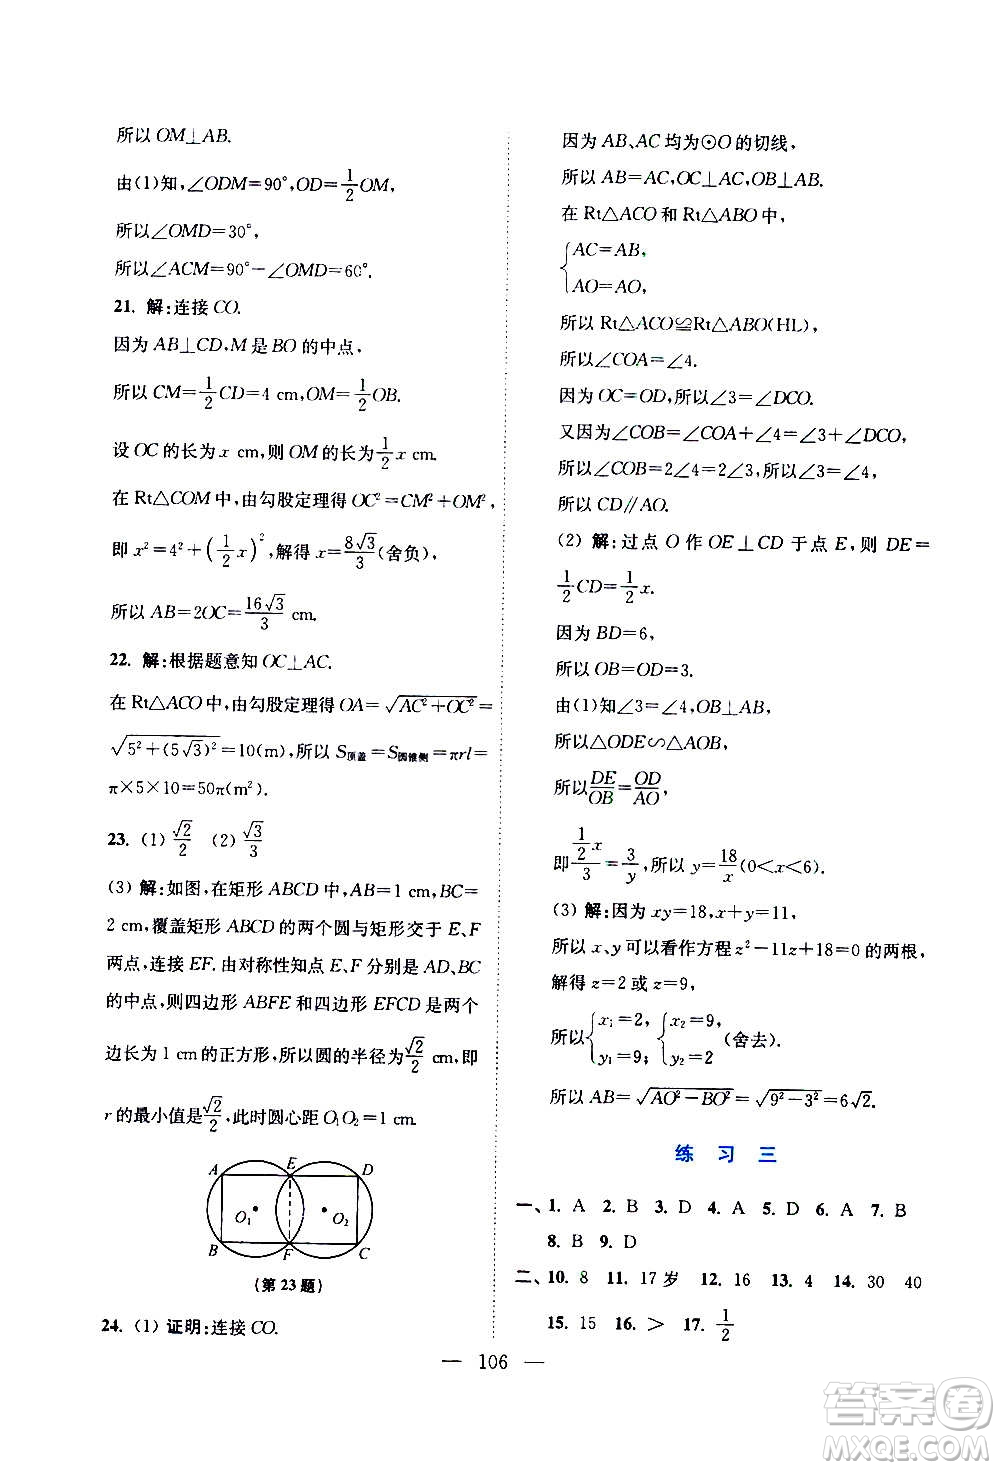 所以 OM⊥AB.
由(1)知,∠ODM=90°,OD=\frac{1}{2}OM,
所以∠OMD=30°,
所以∠ACM=90°-∠OMD=60°.
21. 解:连接 CO.
因为 AB⊥CD,M 是 BO 的中点,
所以 CM=\frac{1}{2}CD=4 cm,OM=\frac{1}{2}OB.
设 OC 的长为 x cm,则 OM 的长为\frac{1}{2}x cm.
在 Rt△COM 中,由勾股定理得 OC²=CM²+OM²,
即 x²=4²+(\frac{1}{2}x)²,解得 x=\frac{8√3}{3}(舍负),
所以 AB=2OC=\frac{16√3}{3} cm.
22. 解:根据题意知 OC⊥AC.
在 Rt△ACO 中,由勾股定理得 OA=√(AC²+OC²)=
√(5²+(5√3)²)=10(m),所以 S顶盖=S圆锥侧=πrl=
π×5×10=50π(m²).
23. (1) \frac{√2}{2} (2) \frac{√3}{3}
(3) 解:如图,在矩形 ABCD 中,AB=1 cm,BC=
2 cm,覆盖矩形 ABCD 的两个圆与矩形交于 E、F
两点,连接 EF. 由对称性知点 E、F 分别是 AD、BC
的中点,则四边形 ABFE 和四边形 EFCD 是两个
边长为 1 cm 的正方形,所以圆的半径为\frac{√2}{2} cm,即
r 的最小值是\frac{√2}{2},此时圆心距 O₁O₂=1 cm.
A E D
O₁ O₂
B F C
(第 23 题)
24. (1) 证明:连接 CO.
因为 AB、AC 均为⊙O 的切线,
所以 AB=AC,OC⊥AC,OB⊥AB.
在 Rt△ACO 和 Rt△ABO 中,
{AC=AB,
AO=AO,
所以 Rt△ACO≌Rt△ABO(HL),
所以∠COA=∠4.
因为 OC=OD,所以∠3=∠DCO.
又因为∠COB=∠COA+∠4=∠3+∠DCO,
所以∠COB=2∠4=2∠3,
所以 CD∥AO.
(2) 解:过点 O 作 OE⊥CD 于点 E,则 DE=
\frac{1}{2}CD=\frac{1}{2}x.
因为 BD=6,
所以 OB=OD=3.
由(1)知∠3=∠4,OB⊥AB,
所以△ODE∽△AOB,
所以\frac{DE}{OB}=\frac{OD}{AO},
即\frac{\frac{1}{2}x}{3}=\frac{3}{y},所以 y=\frac{18}{x}(0<x<6).
(3) 解:因为 xy=18,x+y=11,
所以 x、y 可以看作方程 z²-11z+18=0 的两根,
解得 z=2 或 z=9,
所以{x₁=2, {x₂=9,
y₁=9; y₂=2 (舍去).
所以 AB=√(AO²-BO²)=√(9²-3²)=6√2.
练 习 三
一、1. A 2. B 3. D 4. A 5. D 6. A 7. B
8. B 9. D
二、10. 8 11. 17 岁 12. 16 13. 4 14. 30 40
15. 15 16. > 17. \frac{1}{2}
— 106 —
答案卷
MXQE.COM